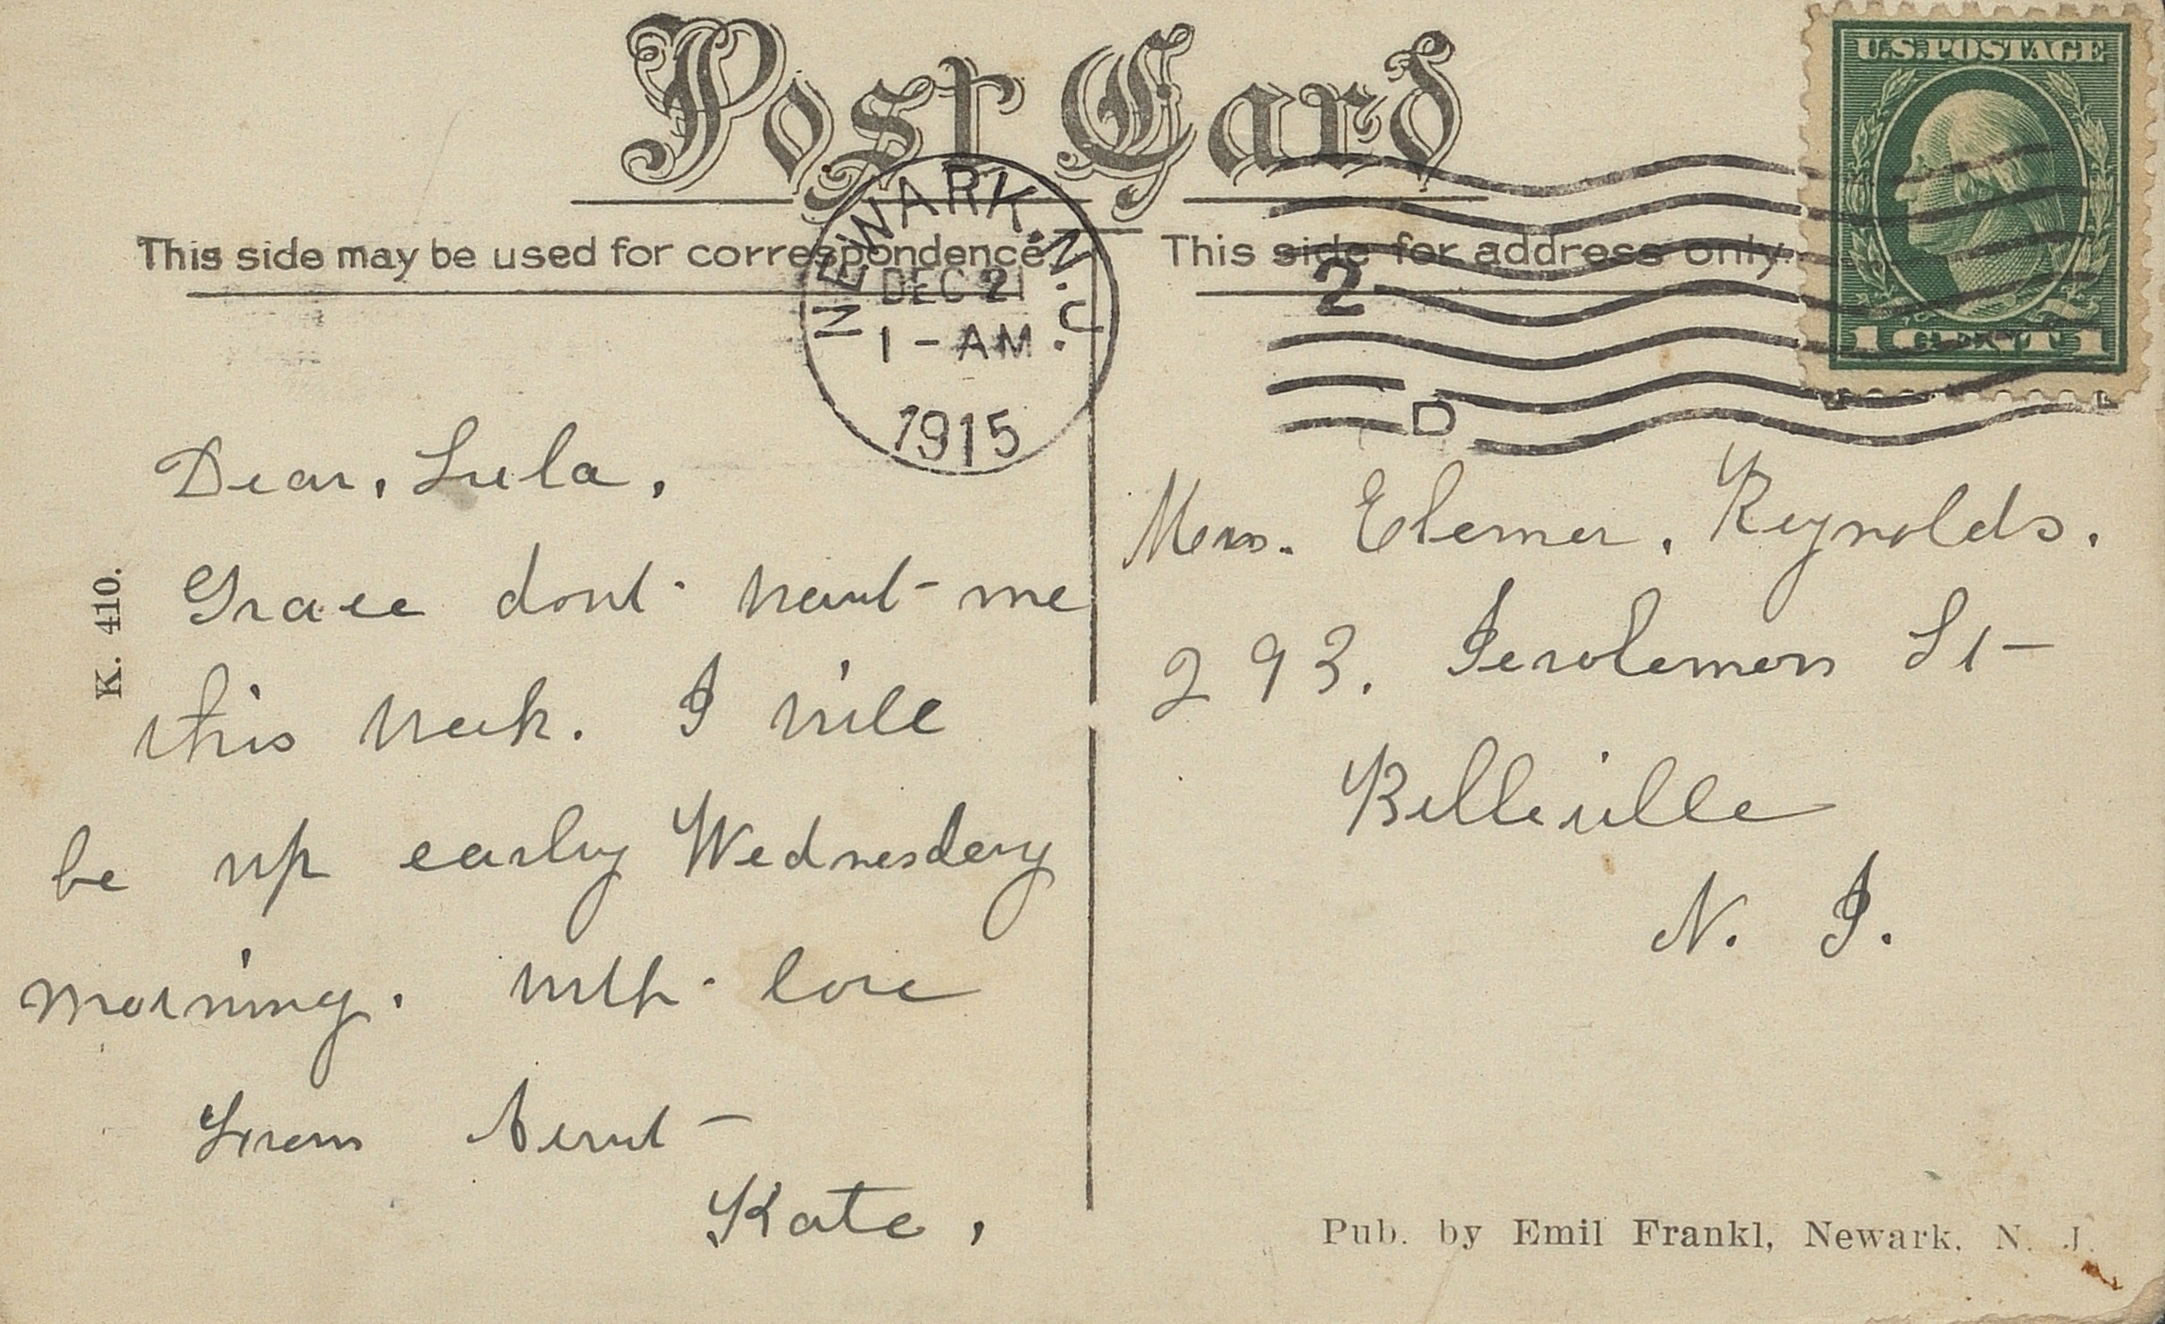 Post Card
This side may be used for correspondence.
This side for address only.
NEWARK, N.J.
DEC 21
1 - AM
1915
2
D
U.S. POSTAGE
1 CENT 1
K. 410.
Dear, Lula,
Grace dont want me
this week. I will
be up early Wednesday
morning. with love
From Aunt
Kate,
Mrs. Elemer, Reynolds.
293. Jerolemon St
Belleville
N. J.
Pub. by Emil Frankl, Newark, N. J.